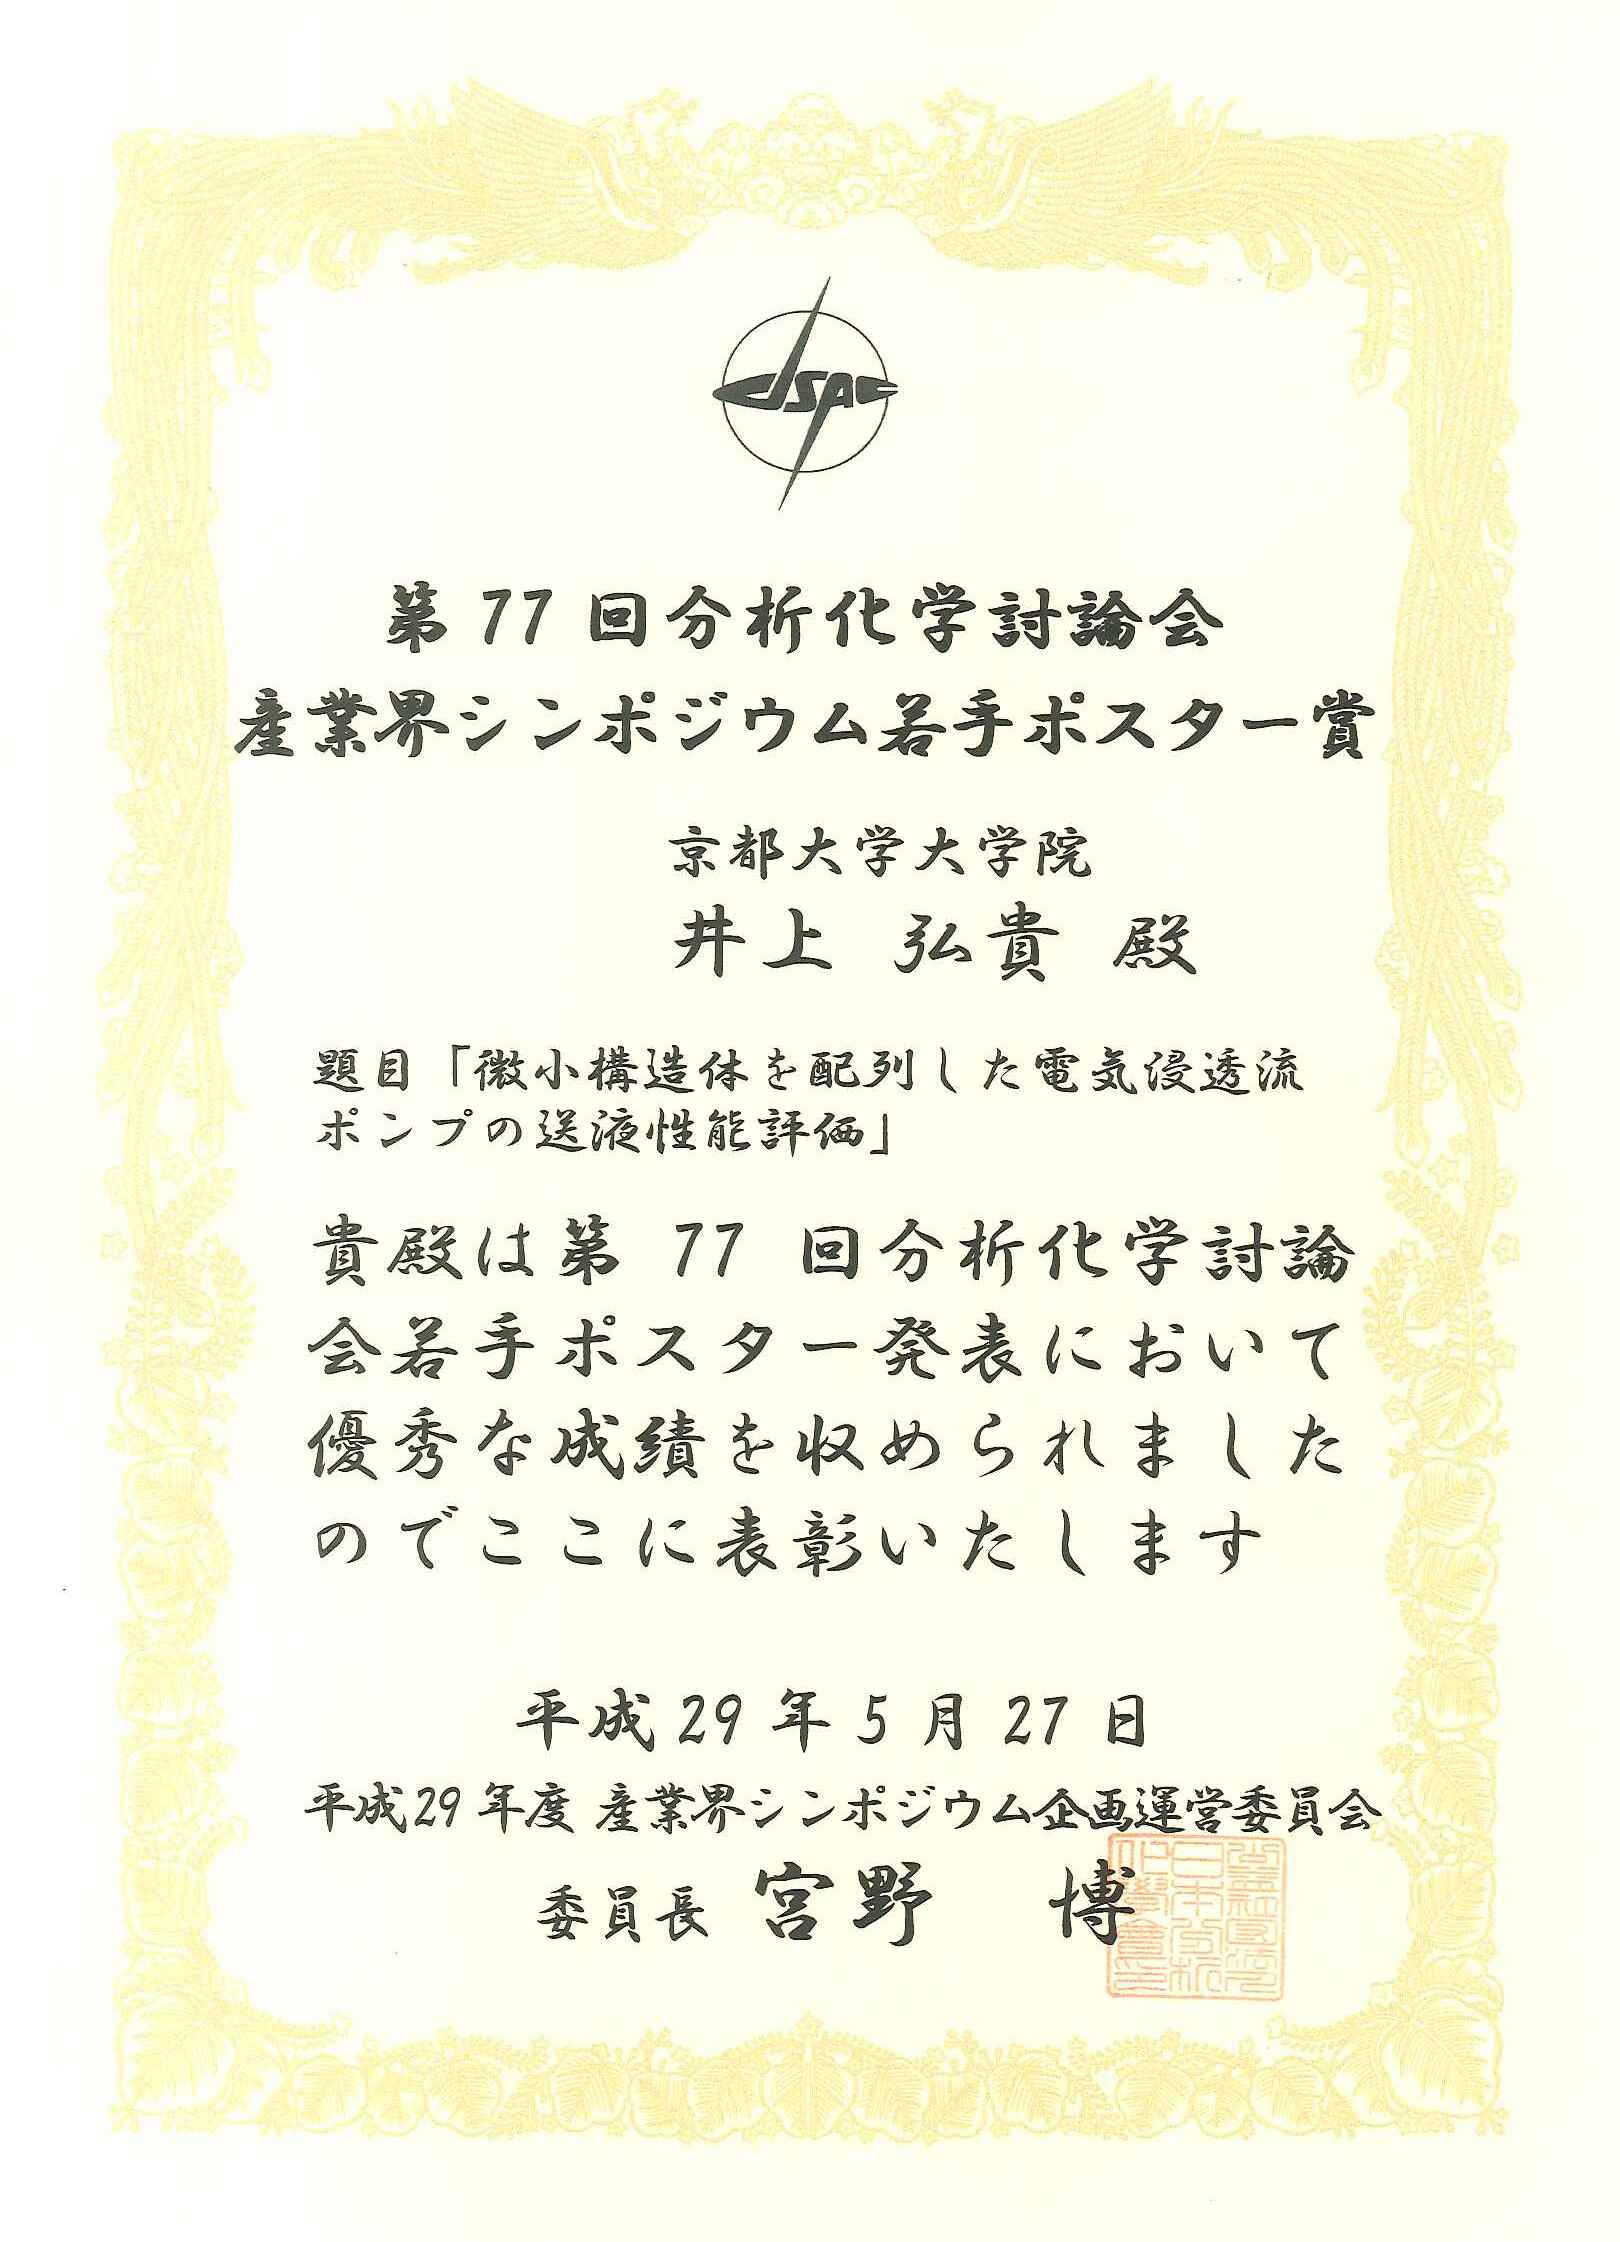 JSAC
第 77 回分析化学討論会
産業界シンポジウム若手ポスター賞
京都大学大学院
井上 弘貴 殿
題目「微小構造体を配列した電気浸透流
ポンプの送液性能評価」
貴殿は第 77 回分析化学討論
会若手ポスター発表において
優秀な成績を収められました
のでここに表彰いたします
平成 29 年 5 月 27 日
平成29 年度 産業界シンポジウム企画運営委員会
委員長 宮野 博